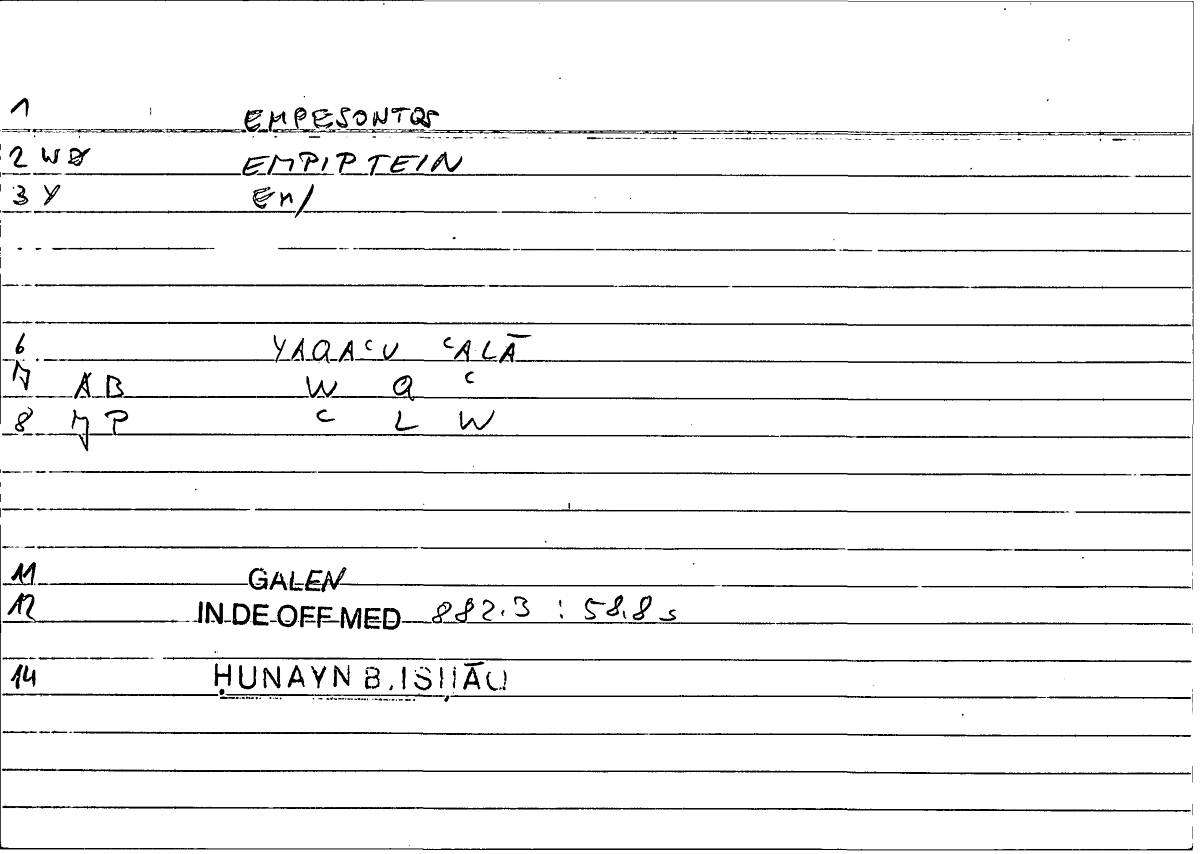 1 EMPESONTOS
2 WB EMPIPTEIN
3 Y En/
6 YAQAʿU ʿALĀ
7 AB W Q ʿ
8 7 P ʿ L W
11 GALEN
12 IN DE OFF MED 882.3 : 58.8 s
14 ḤUNAYN B. ISḤĀQ